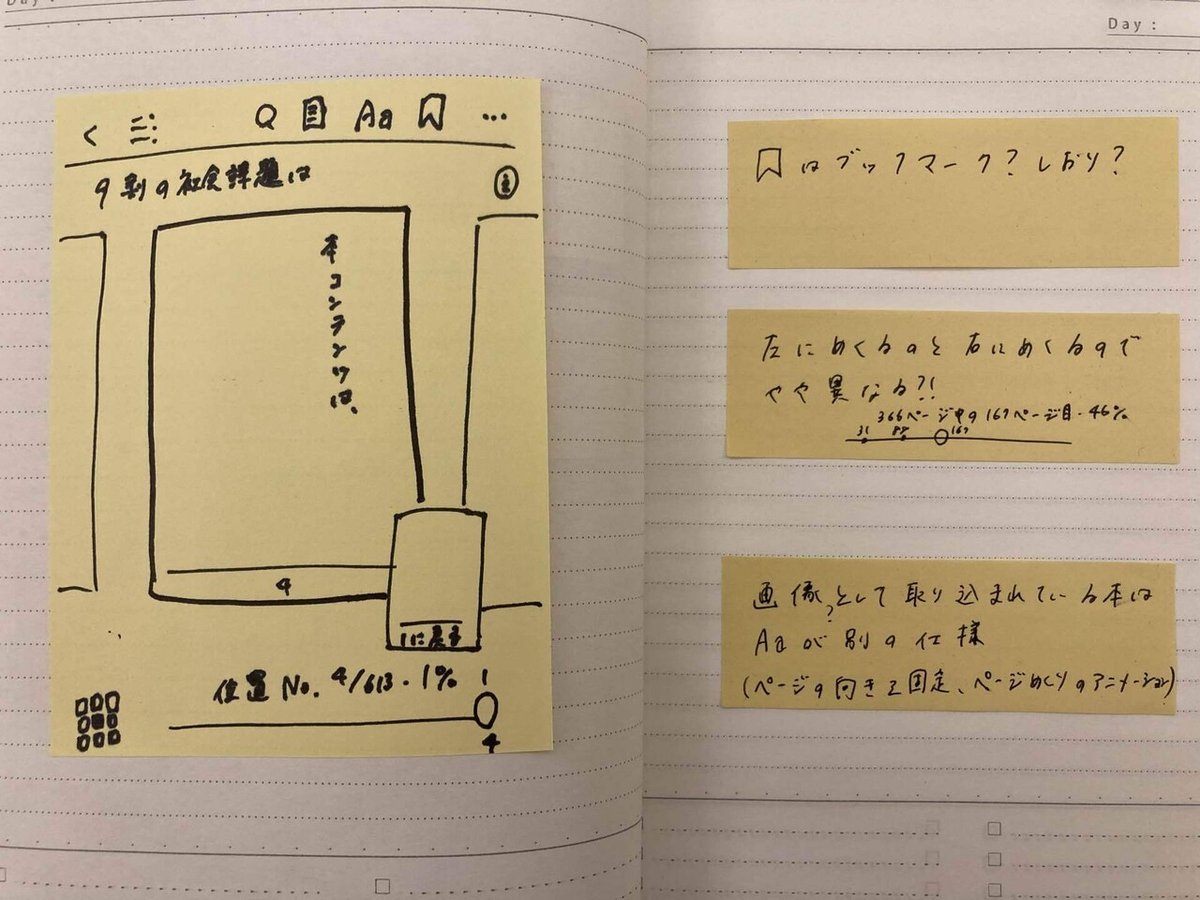 Day :
< Q Aa …
9割の社会課題は i
本コンテンツは、
4
1に戻る
位置No. 4/613・1% 1
4
Day :
はブックマーク?しおり?
左にめくるのと右にめくるので
やや異なる?!
366ページ中の167ページ目・46%
31 88 167
画像?として取り込まれている本は
Aaが別の仕様
(ページの向きを固定、ページめくりのアニメーション)